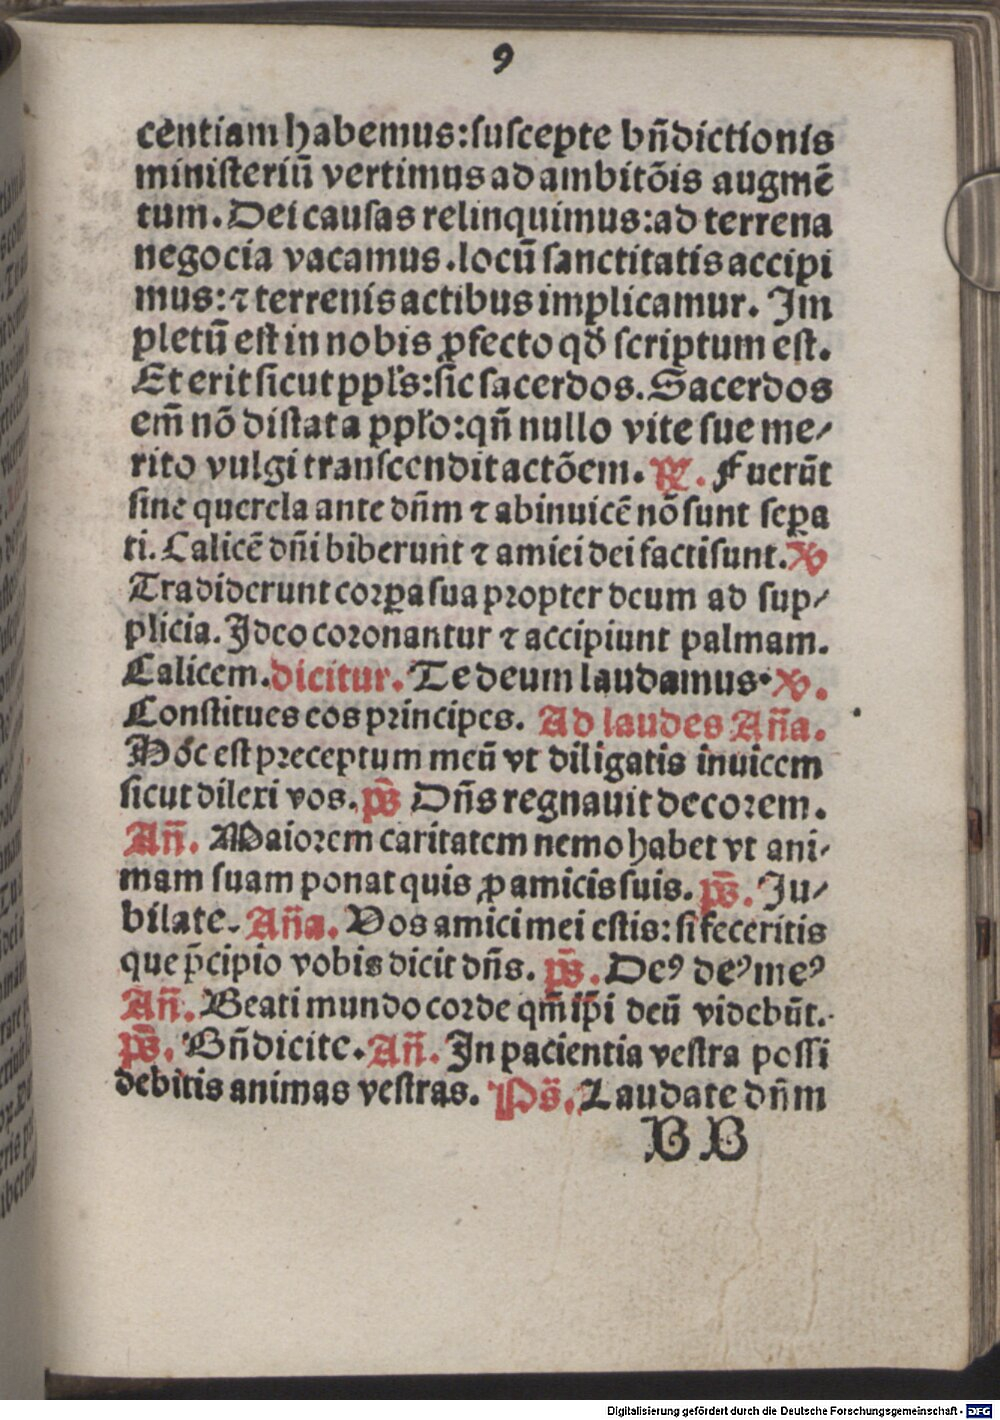 9
centiam habemus:suscepte bn̄dictionis
ministeriū vertimus ad ambitōis augmē
tum. Dei causas relinquimus:ad terrena
negocia vacamus. locū sanctitatis accipi
mus: ⁊ terrenis actibus implicamur. Im
pletū est in nobis ꝓfecto qđ scriptum est.
Et erit sicut ppl's: sic sacerdos. Sacerdos
em̄ nō distat a pplo: qn̄ nullo vite sue me/
rito vulgi transcendit actōem. ℟. Fuerūt
sine querela ante dn̄m ⁊ abinuicē nō sunt seꝑa
ti. Calicē dn̄i biberunt ⁊ amici dei facti sunt. ℣
Tradiderunt corꝑa sua propter deum ad sup/
plicia. Ideo coronantur ⁊ accipiunt palmam.
Calicem. dicitur. Te deum laudamus. ℣.
Constitues eos principes. Ad laudes Añа.
Hoc est preceptum meū vt diligatis inuicem
sicut dilexi vos. ps̄ Dn̄s regnauit decorem.
An̄. Maiorem caritatem nemo habet vt ani/
mam suam ponat quis ꝓ amicis suis. ps̄. Ju/
bilate. An̄a. Vos amici mei estis: si feceritis
que p̄cipio vobis dicit dn̄s. ps̄. Deꝰ deꝰ meꝰ
An̄. Beati mundo corde qm̄ ip̄i deū videbūt.
ps̄. Bn̄dicite. An̄. In paciencia vestra possi
debitis animas vestras. Ps̄. Laudate dn̄m
B B
Digitalisierung gefördert durch die Deutsche Forschungsgemeinschaft - DFG